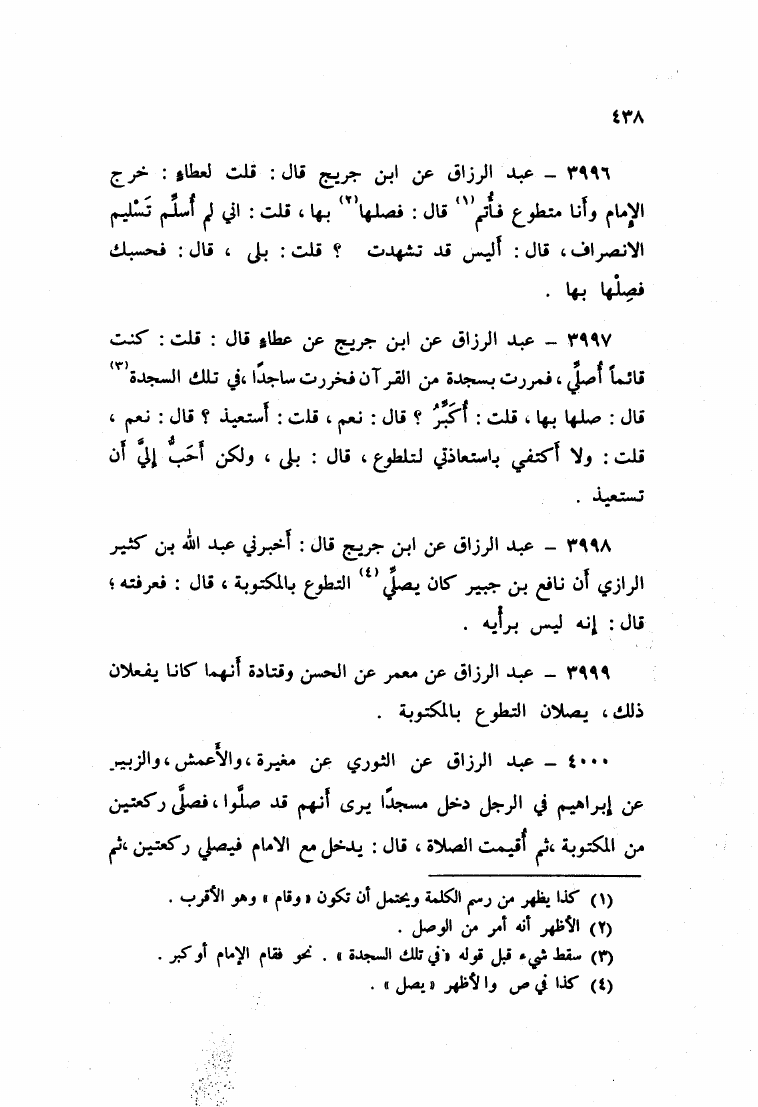 ٤٣٨
٣٩٩٦ – عبد الرزاق عن ابن جريج قال : قلت لعطاءٍ : خرج
الإمام وأنا متطوع فأُتم(١) قال : فصلها(٢) بها ، قلت : اني لم أُسلِّم تَسْليم
الانصراف ، قال : أليس قد تشهدت ؟ قلت : بلى ، قال : فحسبك
فصِلْها بها .
٣٩٩٧ – عبد الرزاق عن ابن جريج عن عطاءٍ قال : قلت : كنت
قائماً أُصلِّي ، فمررت بسجدة من القرآن فخررت ساجدًا ، في تلك السجدة(٣)
قال : صلها بها ، قلت : أُكَبِّرُ ؟ قال : نعم ، قلت : أستعيذ ؟ قال : نعم ،
قلت : ولا أكتفي باستعاذتي لتلطوع ، قال : بلى ، ولكن أَحَبُّ إليَّ أن
تستعيذ .
٣٩٩٨ – عبد الرزاق عن ابن جريج قال : أخبرني عبد الله بن كثير
الرازي أن نافع بن جبير كان يصلِّي(٤) التطوع بالمكتوبة ، قال : فعرفته ؛
قال : إنه ليس برأيه .
٣٩٩٩ – عبد الرزاق عن معمر عن الحسن وقتادة أنهما كانا يفعلان
ذلك ، يصلان التطوع بالمكتوبة .
٤٠٠٠ – عبد الرزاق عن الثوري عن مغيرة ، والأَعمش ، والزبير
عن إبراهيم في الرجل دخل مسجدًا يرى أنهم قد صلَّوا ، فصلَّى ركعتين
من المكتوبة ، ثم أُقيمت الصلاة ، قال : يدخل مع الامام فيصلي ركعتين ، ثم
(١) كذا يظهر من رسم الكلمة ويحتمل أن تكون « وقام » وهو الأقرب .
(٢) الأظهر أنه أمر من الوصل .
(٣) سقط شيء قبل قوله « في تلك السجدة » . نحو فقام الإمام أو كبر .
(٤) كذا في ص والأظهر « يصل » .